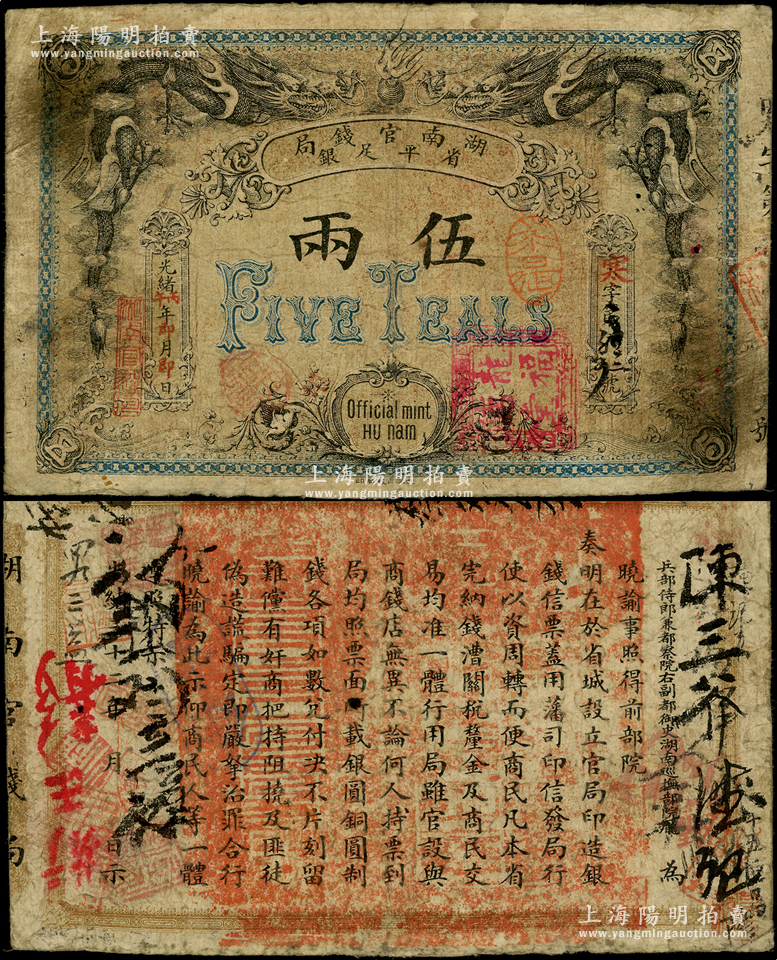 上海陽明拍賣
www.yangmingauction.com
上海陽明拍賣
www.yangmingauction.com
湖南官錢局
省平足銀
伍兩
FIVE TEALS
寒字
號
光緒
年 即 月 即 日
Official mint
HU nam
上海陽明拍賣
www.yangmingauction.com
陳三爺
兵部侍郎兼都察院右副都御史湖南巡撫部院
為
曉諭事照得前部院
奏明在於省城設立官局印造銀
錢信票蓋用藩司印信發局行
使以資周轉而便商民凡本省
完納錢漕關稅釐金及商民交
易均准一體行用局雖官設與
商錢店無異不論何人持票到
局均照票面所載銀圓銅圓制
錢各項如數兌付決不片刻留
難儻有奸商把持阻撓及匪徒
偽造謊騙定即嚴拏治罪合行
曉諭為此示仰商民人等一體
特示
年 月 日示
湖南官錢局
上海陽明拍賣
www.yangmingauction.com